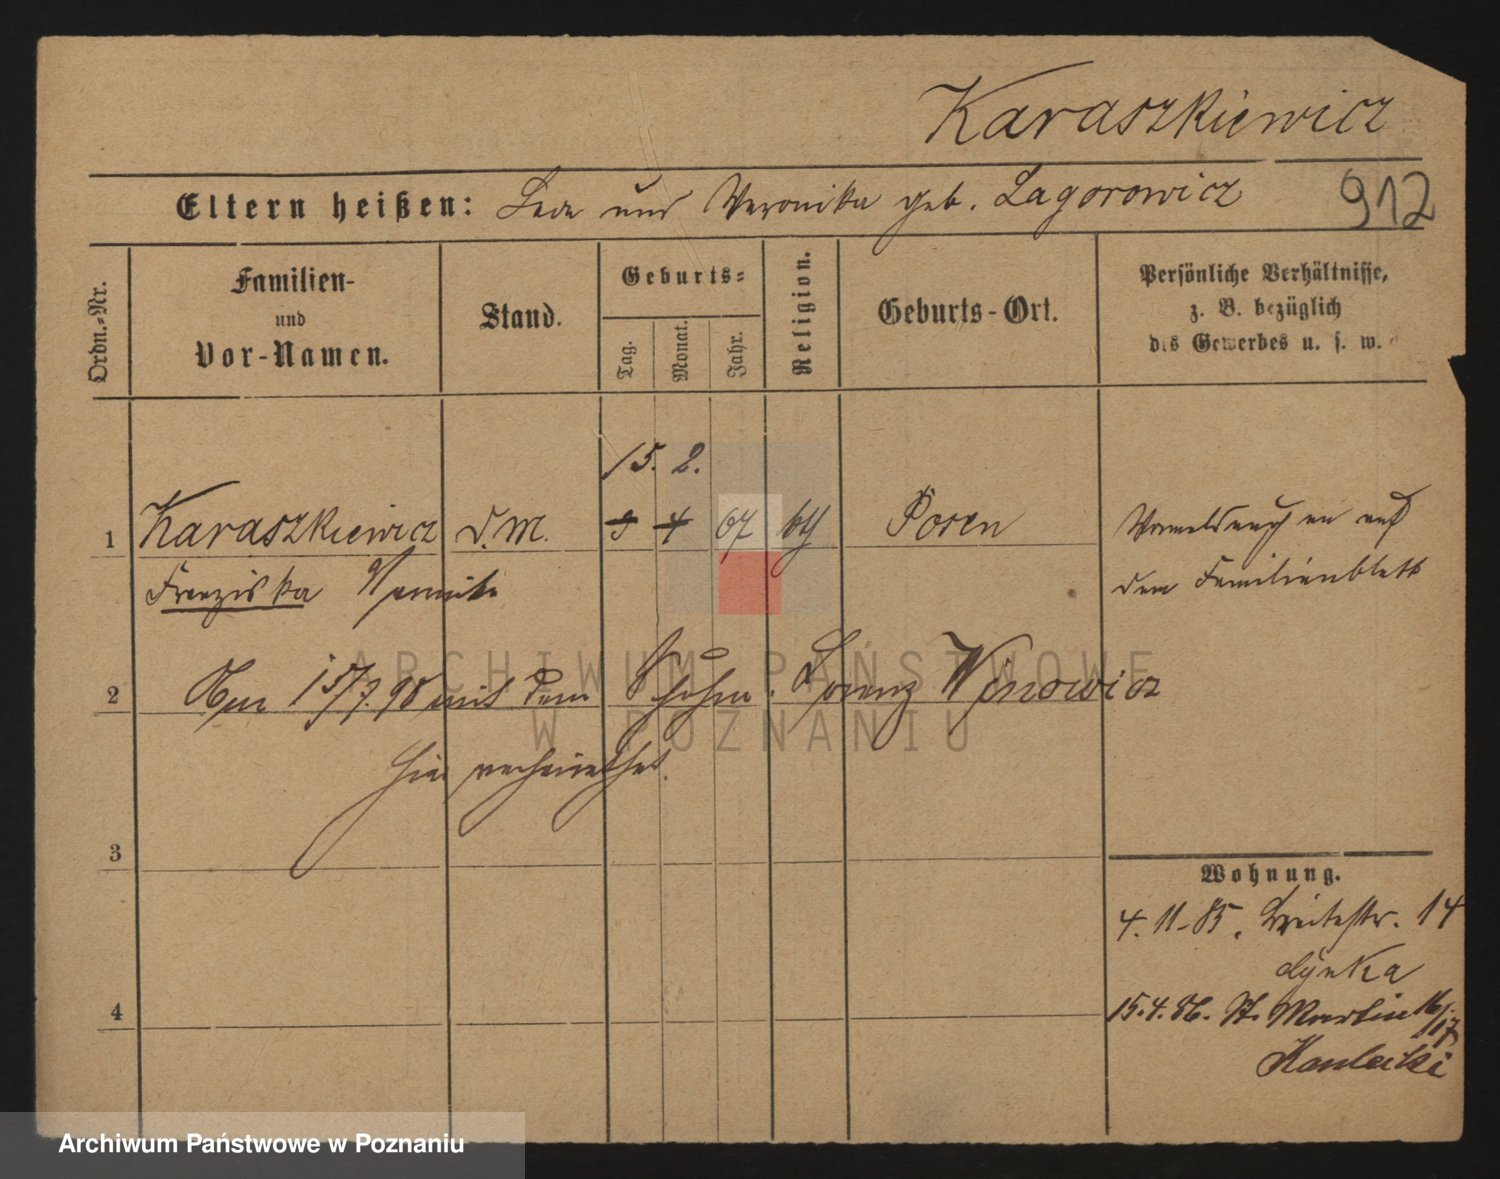 Karaszkiewicz
Eltern heißen: und Veronika geb. Lagorowicz
912
Ordn.-Nr.
Familien-
und
Vor-Namen.
Stand.
Geburts-
Tag.
Monat.
Jahr.
Religion.
Geburts-Ort.
Persönliche Verhältnisse,
z. B. bezüglich
des Gewerbes u. s. w.
15. 2.
1 Karaszkiewicz d. M. 4 67 kth Posen
Franziska
auf
dem Familienblatt
2 Am 15/7. 90 mit dem Schuhm. Lorenz
hier verheirathet.
3
Wohnung.
4. 11. 85. Breitestr. 14
4
15. 4. 86. St. Martin 16/17
ARCHIWUM PAŃSTWOWE
W POZNANIU
Archiwum Państwowe w Poznaniu